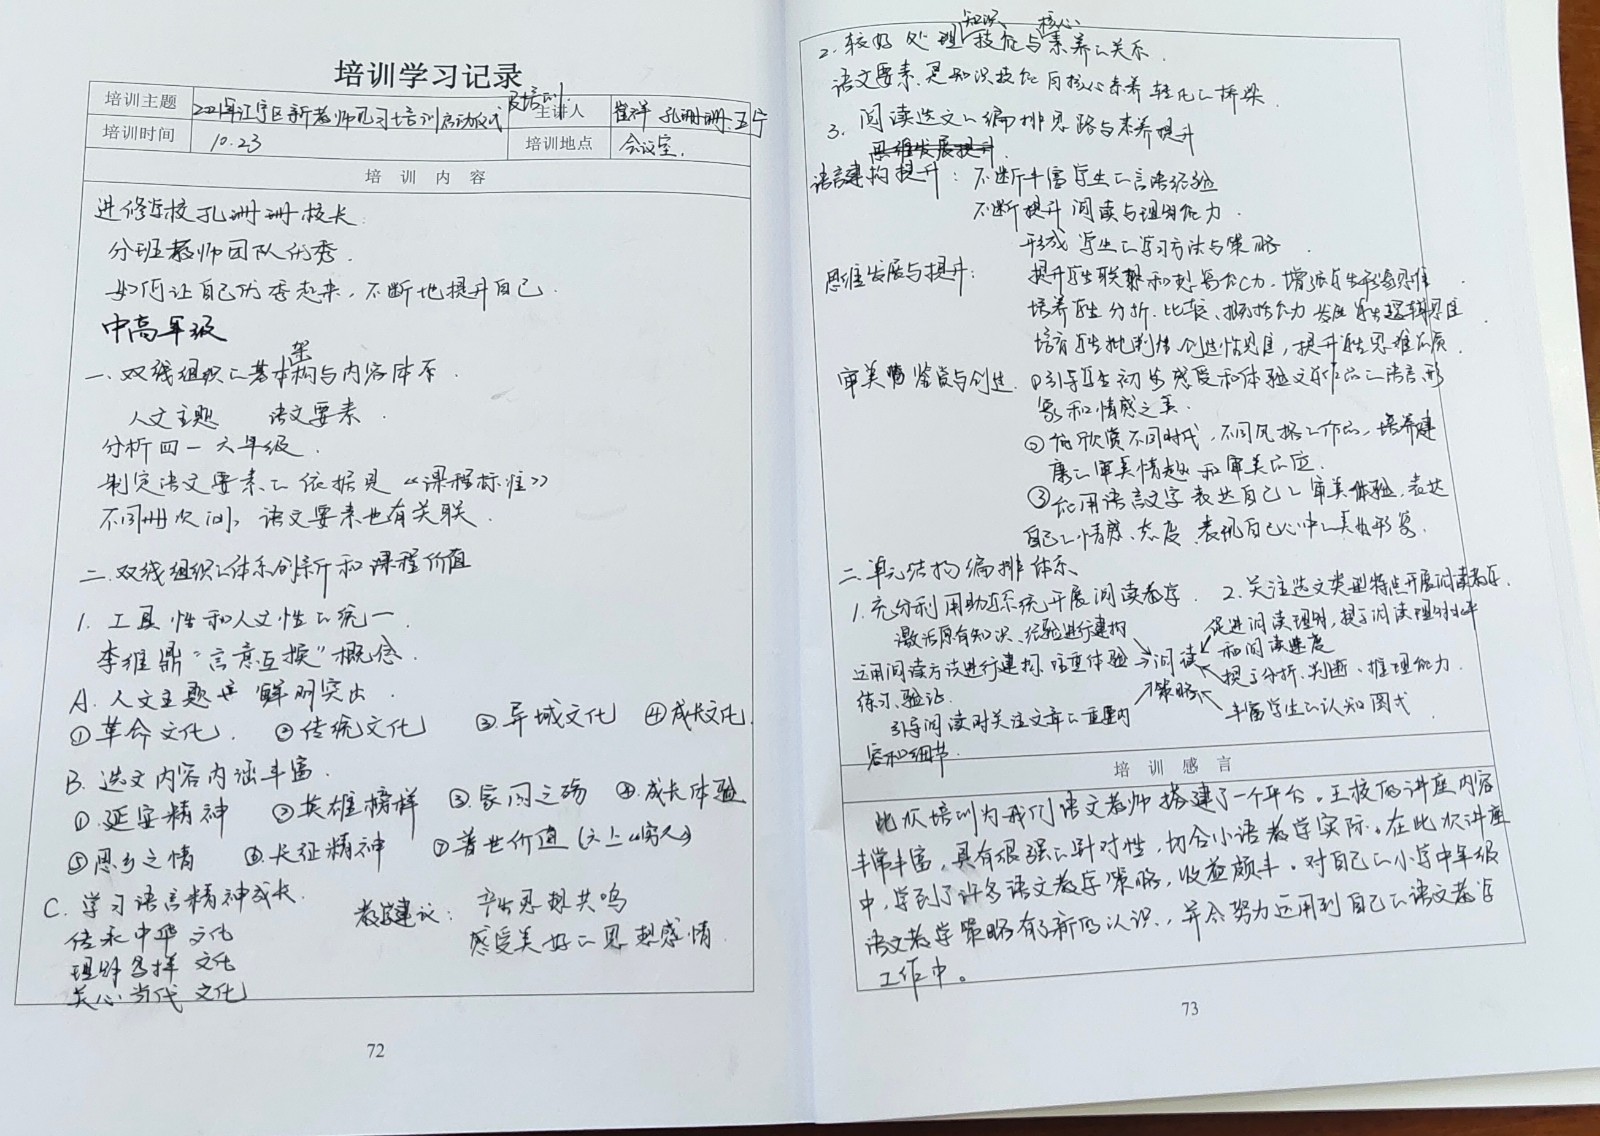 培训学习记录
培训主题 2021年江宁区新教师见习培训启动仪式及培训 主讲人 孔珊珊、王宁
培训时间 10.23 培训地点 会议室.
培 训 内 容
进修学校孔珊珊校长
分班教师团队优秀.
如何让自己优秀起来,不断地提升自己.
中高年级
一、双线组织的基本架构与内容体系.
人文主题 语文要素.
分析四一六年级.
制定语文要素的依据是《课程标准》
不同册次间,语文要素也有关联.
二、双线组织的体系创新和课程价值
1. 工具性和人文性的统一.
李维鼎“言意互换”概念.
A. 人文主题 鲜明突出.
①革命文化. ②传统文化 ③异域文化 ④成长文化.
B. 选文内容内涵丰富.
①.延安精神 ②英雄榜样 ③.家国之殇 ④.成长体验
⑤思乡之情 ⑥.长征精神 ⑦普世价值(六上《穷人》)
C. 学习语言精神成长.
教学建议: 产生思想共鸣
传承中华文化
感受美好的思想感情.
理解多样文化
关心当代文化
72
2. 较好处理知识技能与核心素养的关系.
语文要素是知识技能向核心素养转化的桥梁.
3. 阅读选文的编排思路与素养提升
思维发展提升.
语言建构提升: 不断丰富学生的言语经验
不断提升阅读与理解能力.
形成学生的学习方法与策略.
思维发展与提升: 提升学生联想和想象能力,增强学生形象思维
培养学生分析、比较、概括能力 发展学生逻辑思维
培育学生批判性创造性思维,提升学生思维品质.
审美鉴赏与创造. ①引导学生初步感受和体验文学作品的语言、形
象和情感之美.
②能欣赏不同时代、不同风格的作品,培养健
康的审美情趣和审美品位.
③能用语言文字表达自己的审美体验,表达
自己的情感、态度、表现自己心中的美好形象.
二、单元结构编排体系、
1.充分利用助学系统开展阅读教学. 2.关注选文类型特点开展阅读教学.
激活原有知识、经验进行建构 促进阅读理解,提高阅读理解水平
和阅读速度
运用阅读方法进行建构.注重体验→阅读
策略
练习、验证. 提高分析、判断、推理能力.
引导阅读时关注文章的重要内 丰富学生的认知图式.
容和细节.
培 训 感 言
此次培训为我们语文教师搭建了一个平台。王校的讲座内容
丰常丰富,具有很强的针对性,切合小语教学实际。在此次讲座
中,学到了许多语文教学策略,收益颇丰。对自己的小学中年级
语文教学策略有了新的认识,并会努力运用到自己的语文教学
工作中。
73